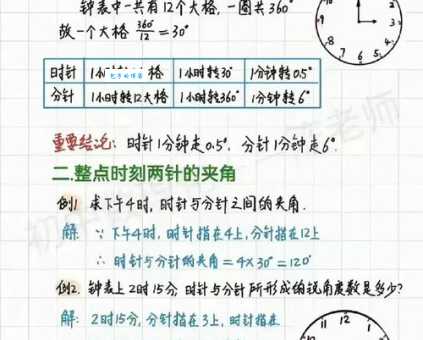 钟表中一共有12个大格，一圈共360°
故一个大格 360°/12 = 30°
12 2 3 4 5 6 7 8 9
时针 1小 格 1小时转30° 1分钟转0.5°
分针 1小时转12大格 1小时转360° 1分钟转6°
重要结论：时针1分钟走0.5°. 分针1分钟走6°.
二.整点时刻两针的夹角
例1 求下午4时，时针与分针之间的夹角.
解 ∵ 下午4时，时针指在4上，分针指在12上
∴ 时针与分针的夹角=4×30°=120°
例2. 钟表上2时15分，时针与分针所形成的锐角度数是多少?
解: 2时15分，分针指在3上，时针指在
11 12 1